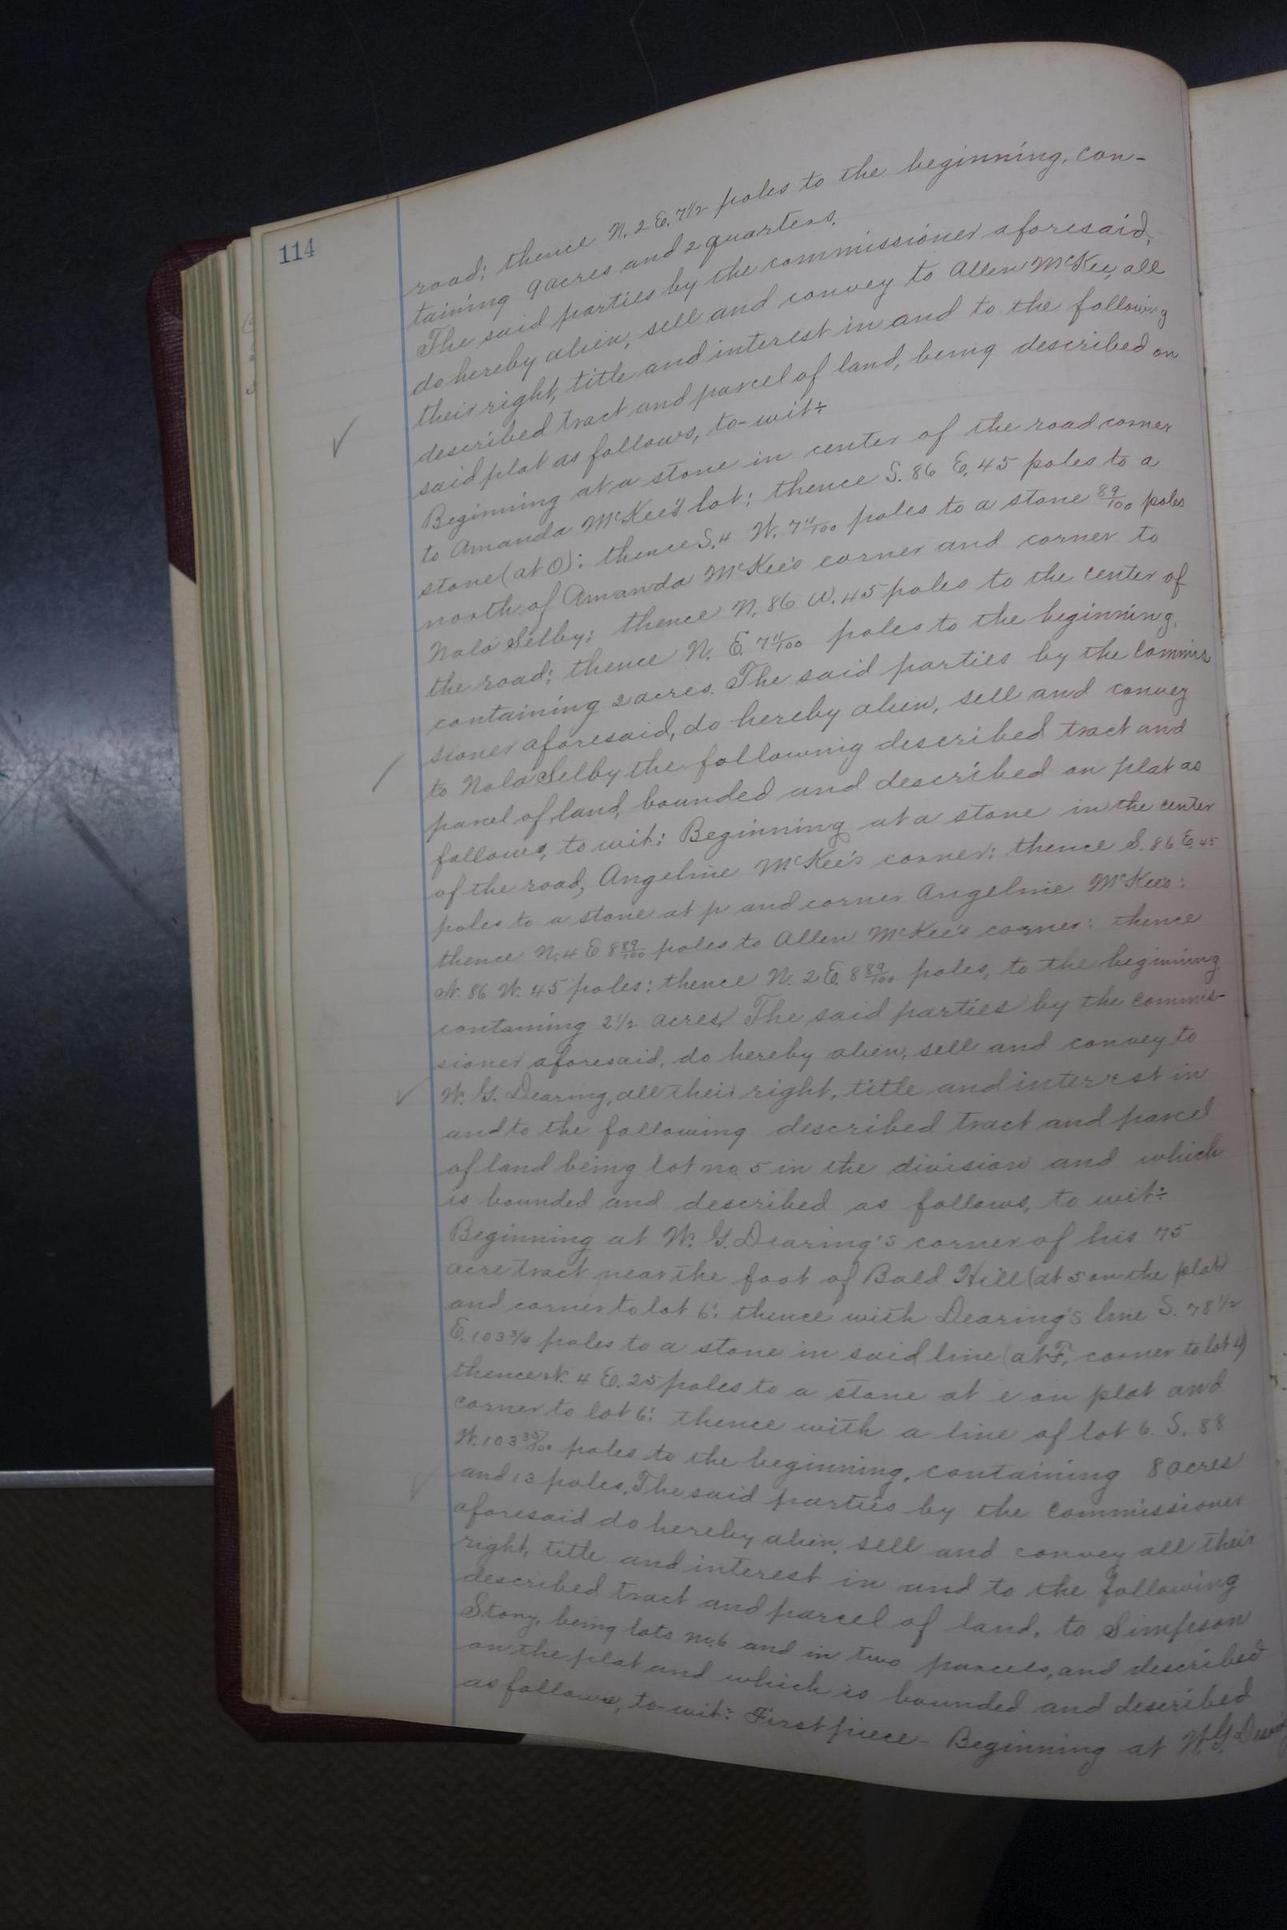 114
road; thence N. 2 E. 7 1/2 poles to the beginning, con-
taining 9 acres and 2 quarters.
The said parties by the commissioner aforesaid,
do hereby alien, sell and convey to Allen McKee, all
their right, title and interest in and to the following
described tract and parcel of land, being described on
said plat as follows, to-wit:
Beginning at a stone in center of the road corner
to Amanda McKee's lot; thence S. 86 E. 45 poles to a
stone (at O): thence S. 4 W. 7 11/100 poles to a stone 89/100 poles
north of Amanda McKee's corner and corner to
Nola Selby; thence N. 86 W. 45 poles to the center of
the road; thence N. E. 7 11/100 poles to the beginning,
containing 2 acres. The said parties by the commis
sioner aforesaid, do hereby alien, sell and convey
to Nola Selby the following described tract and
parcel of land, bounded and described on plat as
follows, to wit: Beginning at a stone in the center
of the road, Angeline McKee's corner: thence S. 86 E. 45
poles to a stone at p and corner Angeline McKee's:
thence N. 4 E 8 89/100 poles to Allen McKee's corner: thence
N. 86 W. 45 poles: thence N. 2 E. 8 89/100 poles, to the beginning
containing 2 1/2 acres. The said parties by the commis-
sioner aforesaid, do hereby alien, sell and convey to
W. G. Dearing, all their right, title and interest in
and to the following described tract and parcel
of land being lot no 5 in the division and which
is bounded and described as follows, to wit:
Beginning at W. G. Dearing's corner of his 75
acre tract near the foot of Bald Hill (at s on the plat)
and corner to lot 6: thence with Dearing's line S. 78 1/2
E. 103 3/4 poles to a stone in said line (at F. corner to lot 4)
thence N. 4 E. 25 poles to a stone at e on plat and
corner to lot 6: thence with a line of lot 6. S. 88
W. 103 30/100 poles to the beginning, containing 8 acres
and 13 poles. The said parties by the commissioner
aforesaid do hereby alien, sell and convey all their
right, title and interest in and to the following
described tract and parcel of land, to Simpson
Story, being lots no. 6 and in two parcels, and described
on the plat and which is bounded and described
as follows, to-wit: First piece - Beginning at W. G.